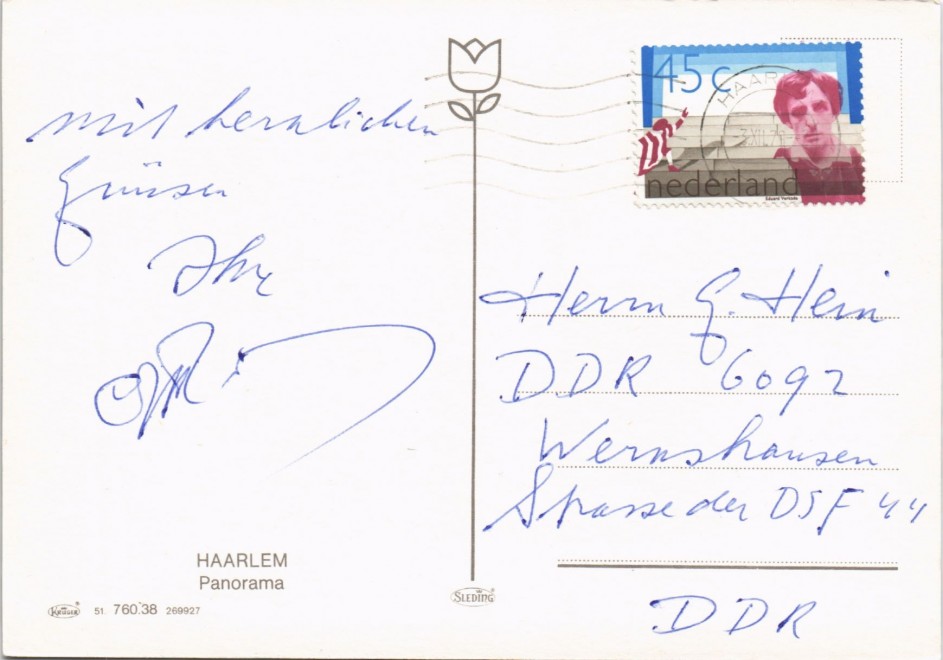 mit herzlichen
Grüssen
Ihr
HAARLEM
Panorama
KRÜGER 51. 760.38 269927
SLEDING
45 c
nederland
HAAR
Herrn G. Hein
DDR 6092
Wernshausen
Strasse der DSF 44
DDR